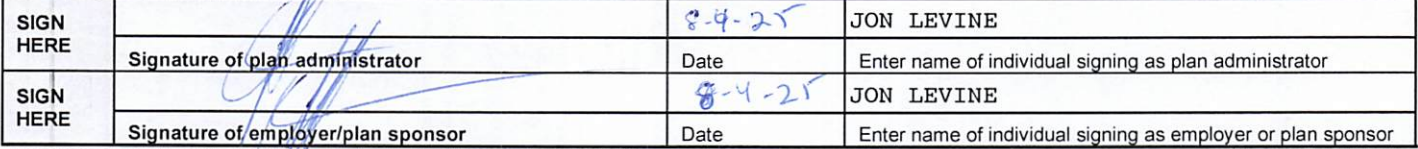 SIGN HERE 8-4-25 JON LEVINE
Signature of plan administrator Date Enter name of individual signing as plan administrator
SIGN HERE 8-4-25 JON LEVINE
Signature of employer/plan sponsor Date Enter name of individual signing as employer or plan sponsor